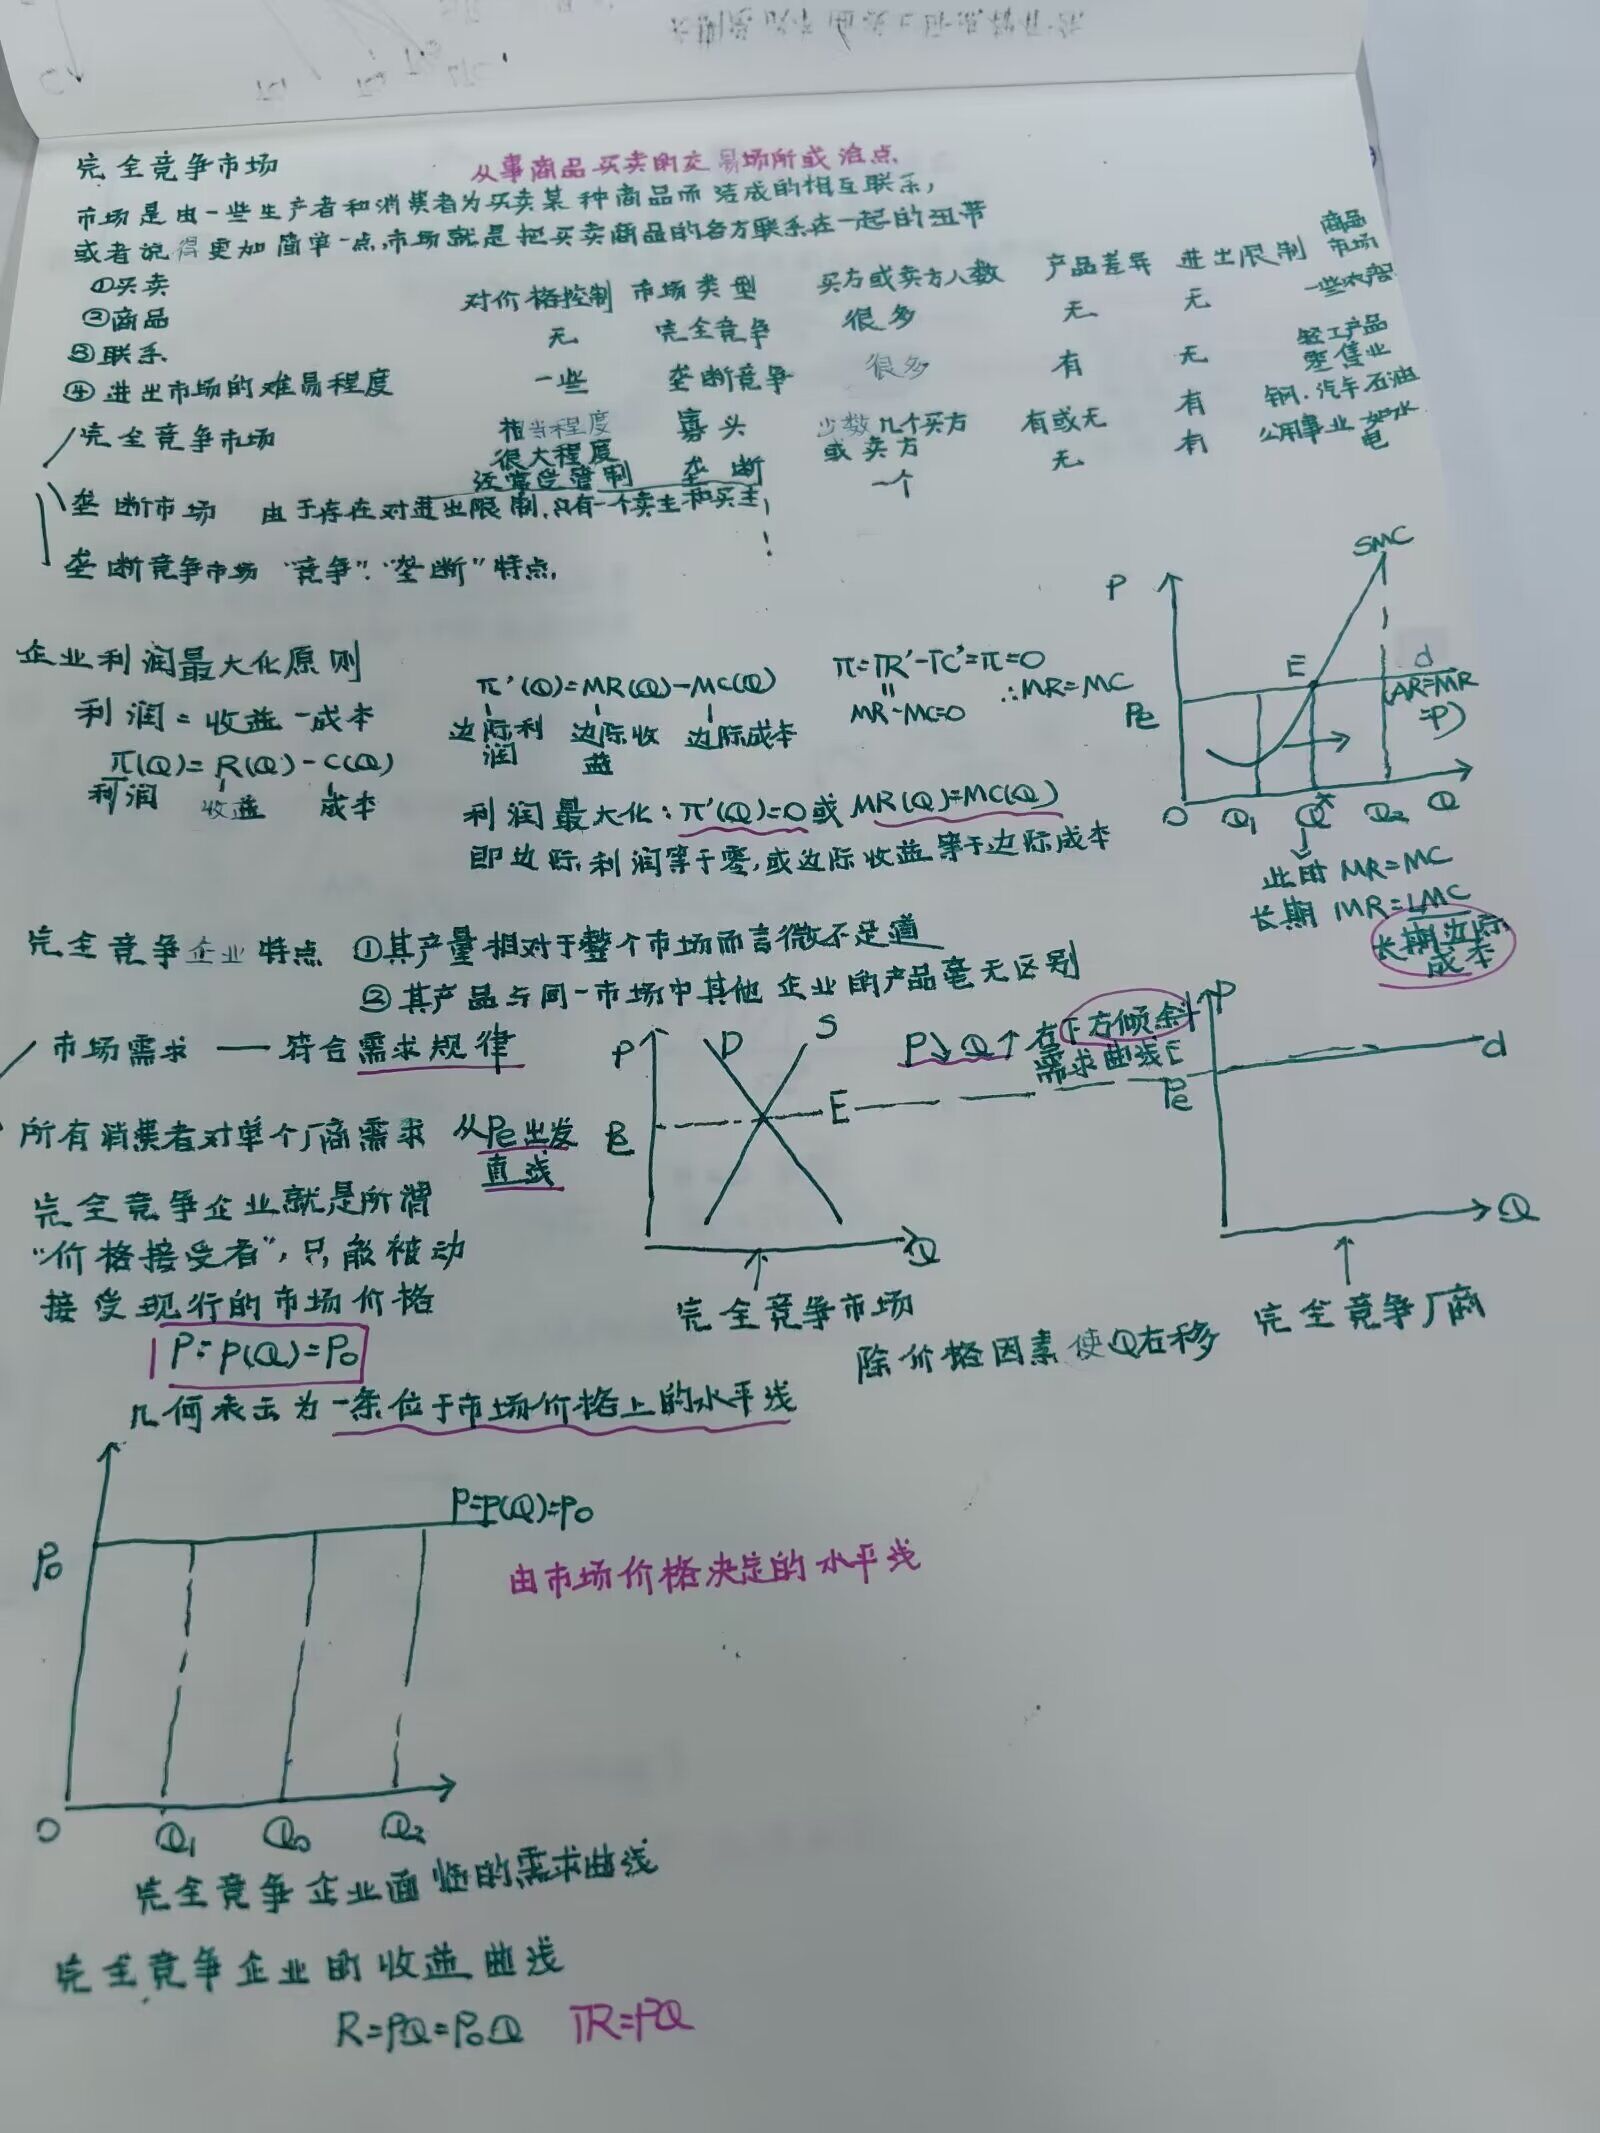 完全竞争市场
从事商品买卖的交易场所或
市场是由一些生产者和消费者为买卖某种商品而结成的相互联系,
或者说得更加简单一点,市场就是把买卖商品的各方联系在一起的纽带
①买卖
②商品
③联系
④进出市场的难易程度
对价格控制 市场类型 买方或卖方人数 产品差异 进出限制 商品市场
无 完全竞争 很多 无 无 一些农产品
一些 垄断竞争 很多 有 无 轻工产品
零售业
相当程度 寡头 少数几个买方或卖方 有或无 有 钢.汽车石油
很大程度
经常受管制 垄断 一个 无 有 公用事业 如水电
完全竞争市场
垄断市场 由于存在对进出限制,只有一个卖主和买主,
垄断竞争市场 "竞争"."垄断"特点,
企业利润最大化原则
利润=收益-成本
π(Q)=R(Q)-C(Q)
利润 收益 成本
π'(Q)=MR(Q)-MC(Q)
边际利润 边际收益 边际成本
π=TR'-TC'=π=0
MR-MC=0 ∴MR=MC
利润最大化:π'(Q)=0或MR(Q)=MC(Q)
即边际利润等于零,或边际收益等于边际成本
P
SMC
E
d
(AR=MR
=P)
Pe
O Q1 Q* Q2 Q
此时 MR=MC
长期 MR=LMC
长期边际成本
完全竞争企业特点 ①其产量相对于整个市场而言微不足道
②其产品与同一市场中其他企业的产品毫无区别
市场需求 — 符合需求规律
P↘Q↑右下方倾斜
需求曲线
所有消费者对单个厂商需求 从Pe出发
直线
P D S
Pe E
Q
完全竞争市场
P
E
Pe d
Q
完全竞争厂商
除价格因素使Q右移
完全竞争企业就是所谓
"价格接受者",只能被动
接受现行的市场价格
P=P(Q)=P0
几何表示为一条位于市场价格上的水平线
P=P(Q)=P0
P0
由市场价格决定的水平线
O Q1 Q0 Q2
完全竞争企业面临的需求曲线
完全竞争企业的收益曲线
R=PQ=P0Q TR=PQ